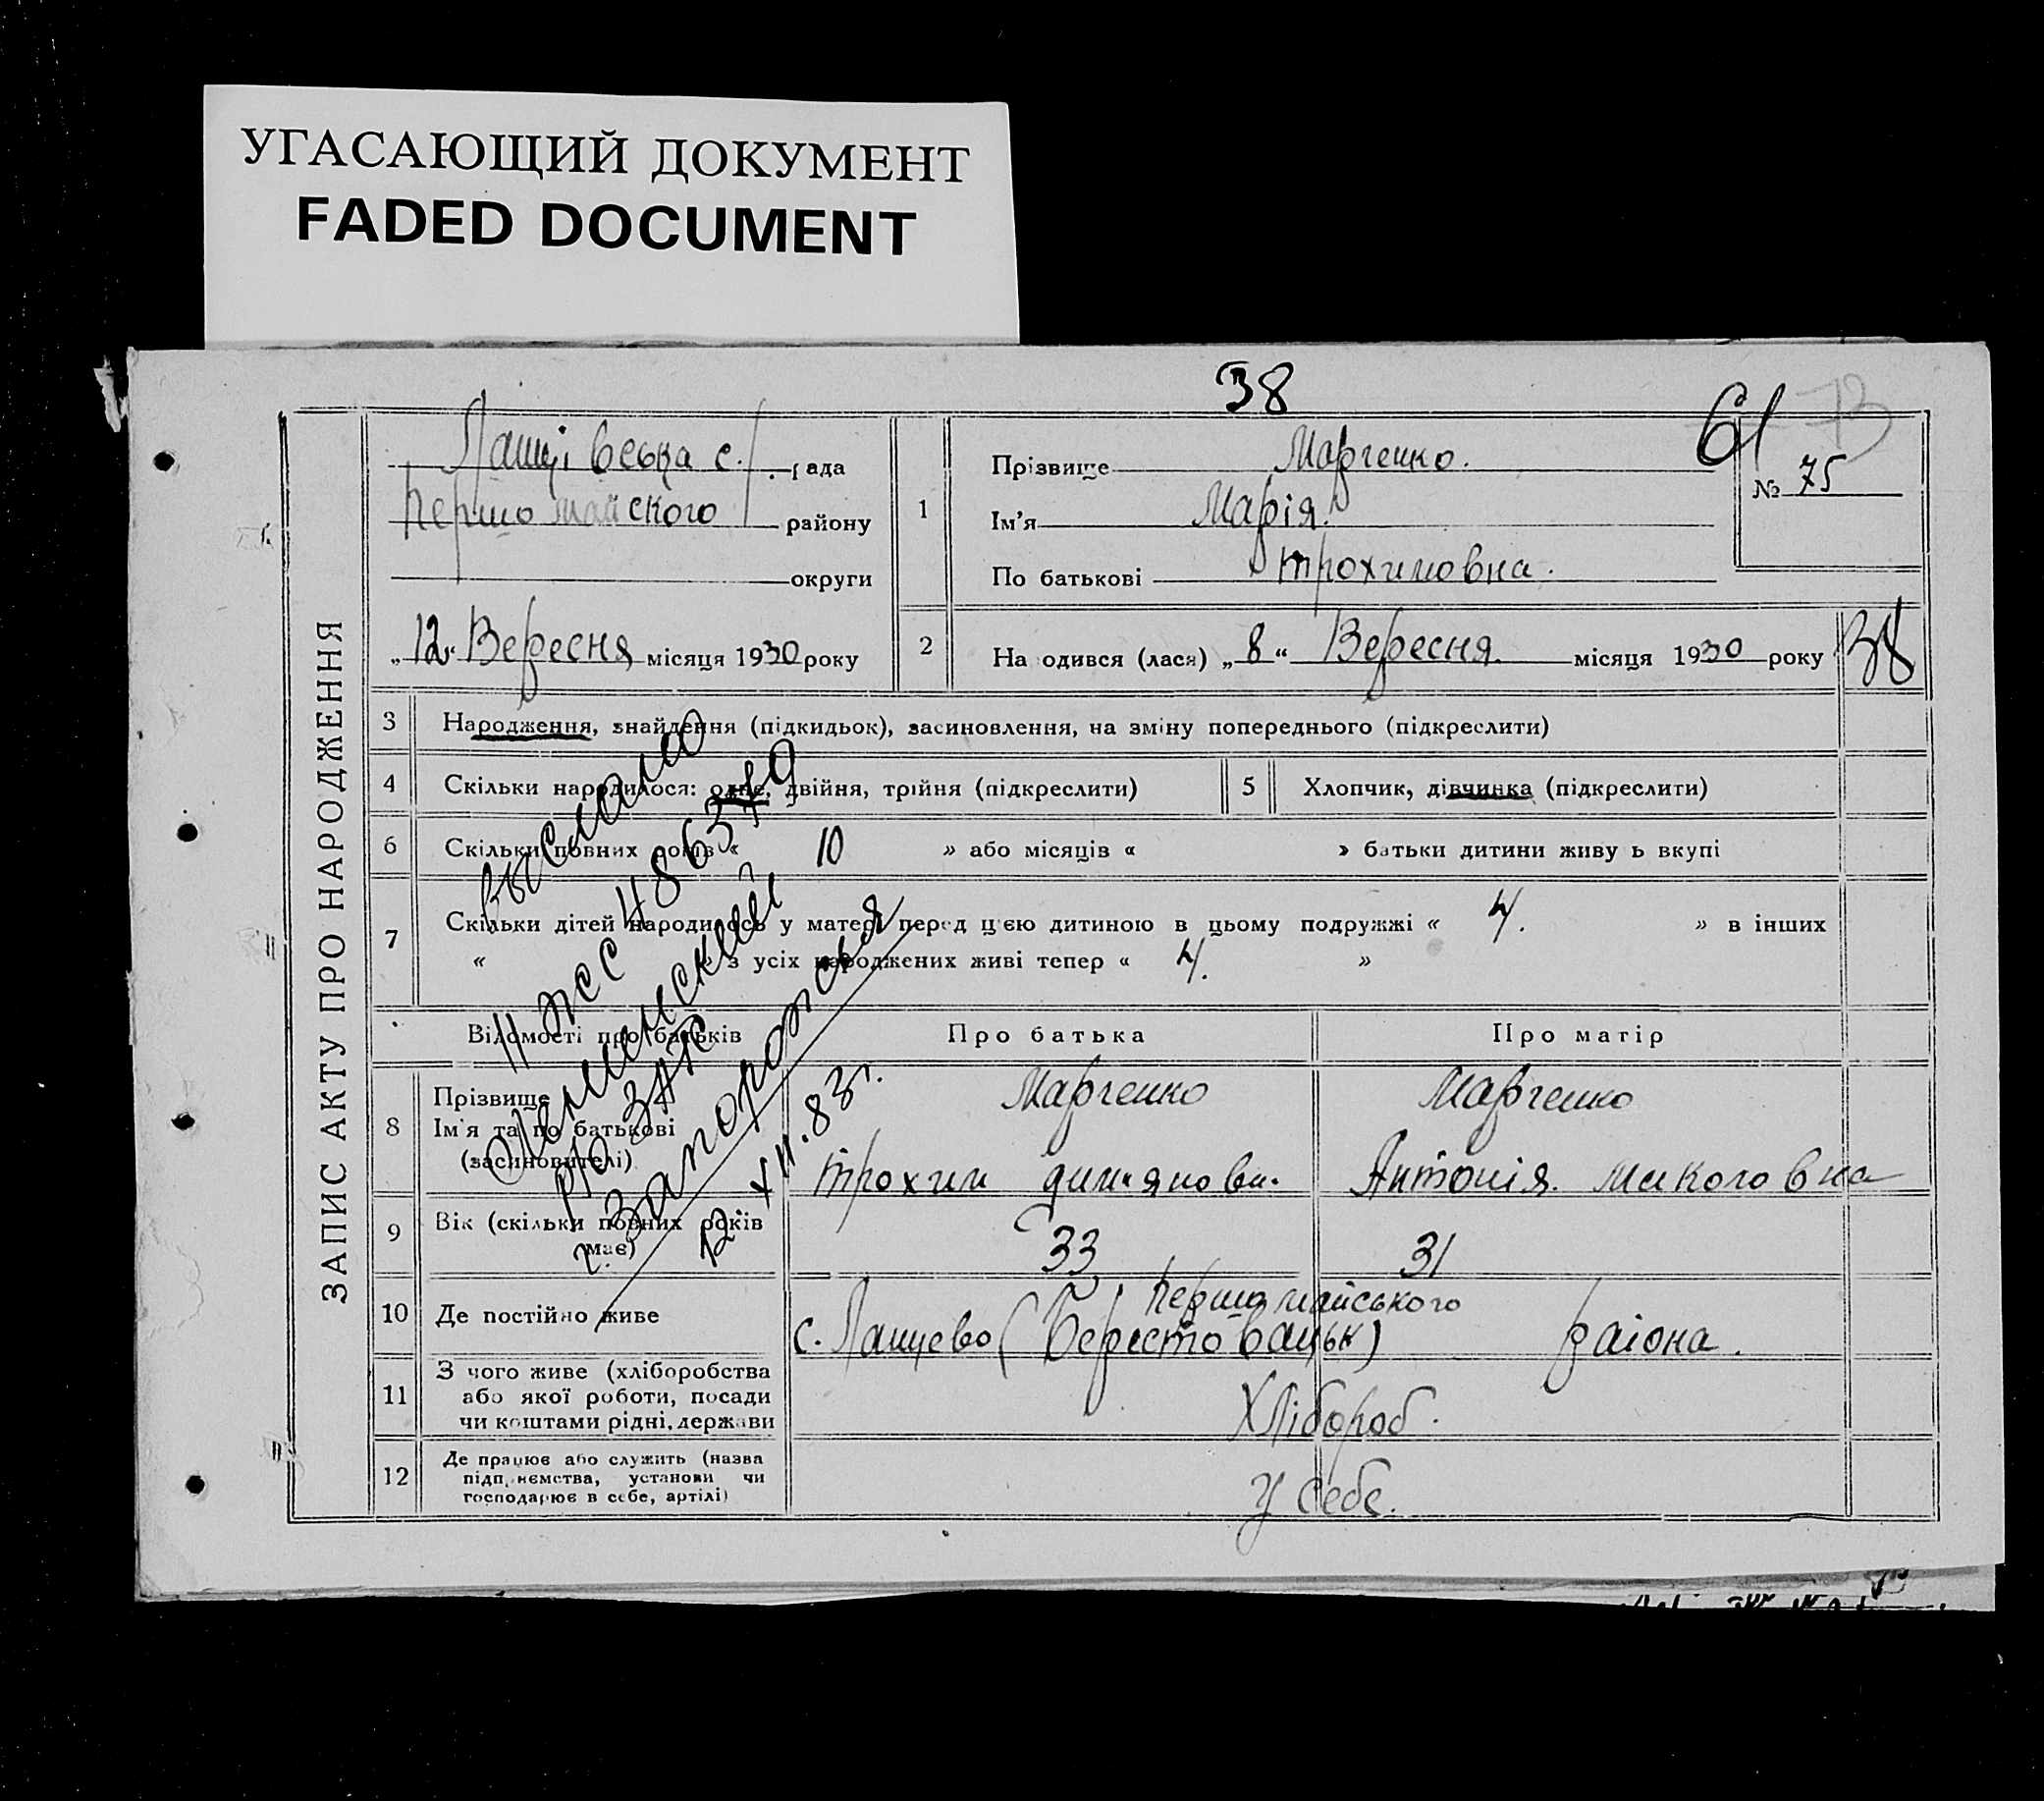 УГАСАЮЩИЙ ДОКУМЕНТ
FADED DOCUMENT
38
61
73
ЗАПИС АКТУ ПРО НАРОДЖЕННЯ
Лащівська с. рада
Першомайского району
округи
„12“ Вересня місяця 1930 року
1
Прізвище Марченко.
Ім'я Марія.
По батькові Трохимовна.
№ 75
2
На одився (лася) „8“ Вересня місяця 1930 року
38
3 Народження, знайдення (підкидьок), засиновлення, на зміну попереднього (підкреслити)
4 Скільки народилося: одне, двійня, трійня (підкреслити)
5 Хлопчик, дівчинка (підкреслити)
6 Скільки повних років « 10 » або місяців « » батьки дитини живу ь вкупі
7 Скільки дітей народилось у матері перед цією дитиною в цьому подружжі « 4. » в інших
« » з усіх народжених живі тепер « 4. »
Відомості про батьків
Про батька
Про матір
8 Прізвище
Ім'я та по батькові
(засиновителі)
Марченко
Трохим Димяновь.
Марченко
Антонія. Миколовна
9 Вік (скільки повних років
має)
33
31
10 Де постійно живе
Першомайського
с. Лащево (Берестовацьк) раіона.
11 З чого живе (хліборобства
або якої роботи, посади
чи коштами рідні, держави
Хлібороб.
12 Де працює або служить (назва
підп.иємства, установи чи
господарює в себе, артілі)
У себе.
Выслано
486379
р/о ЗАГС
г. Запорожья
12. XII. 83г.